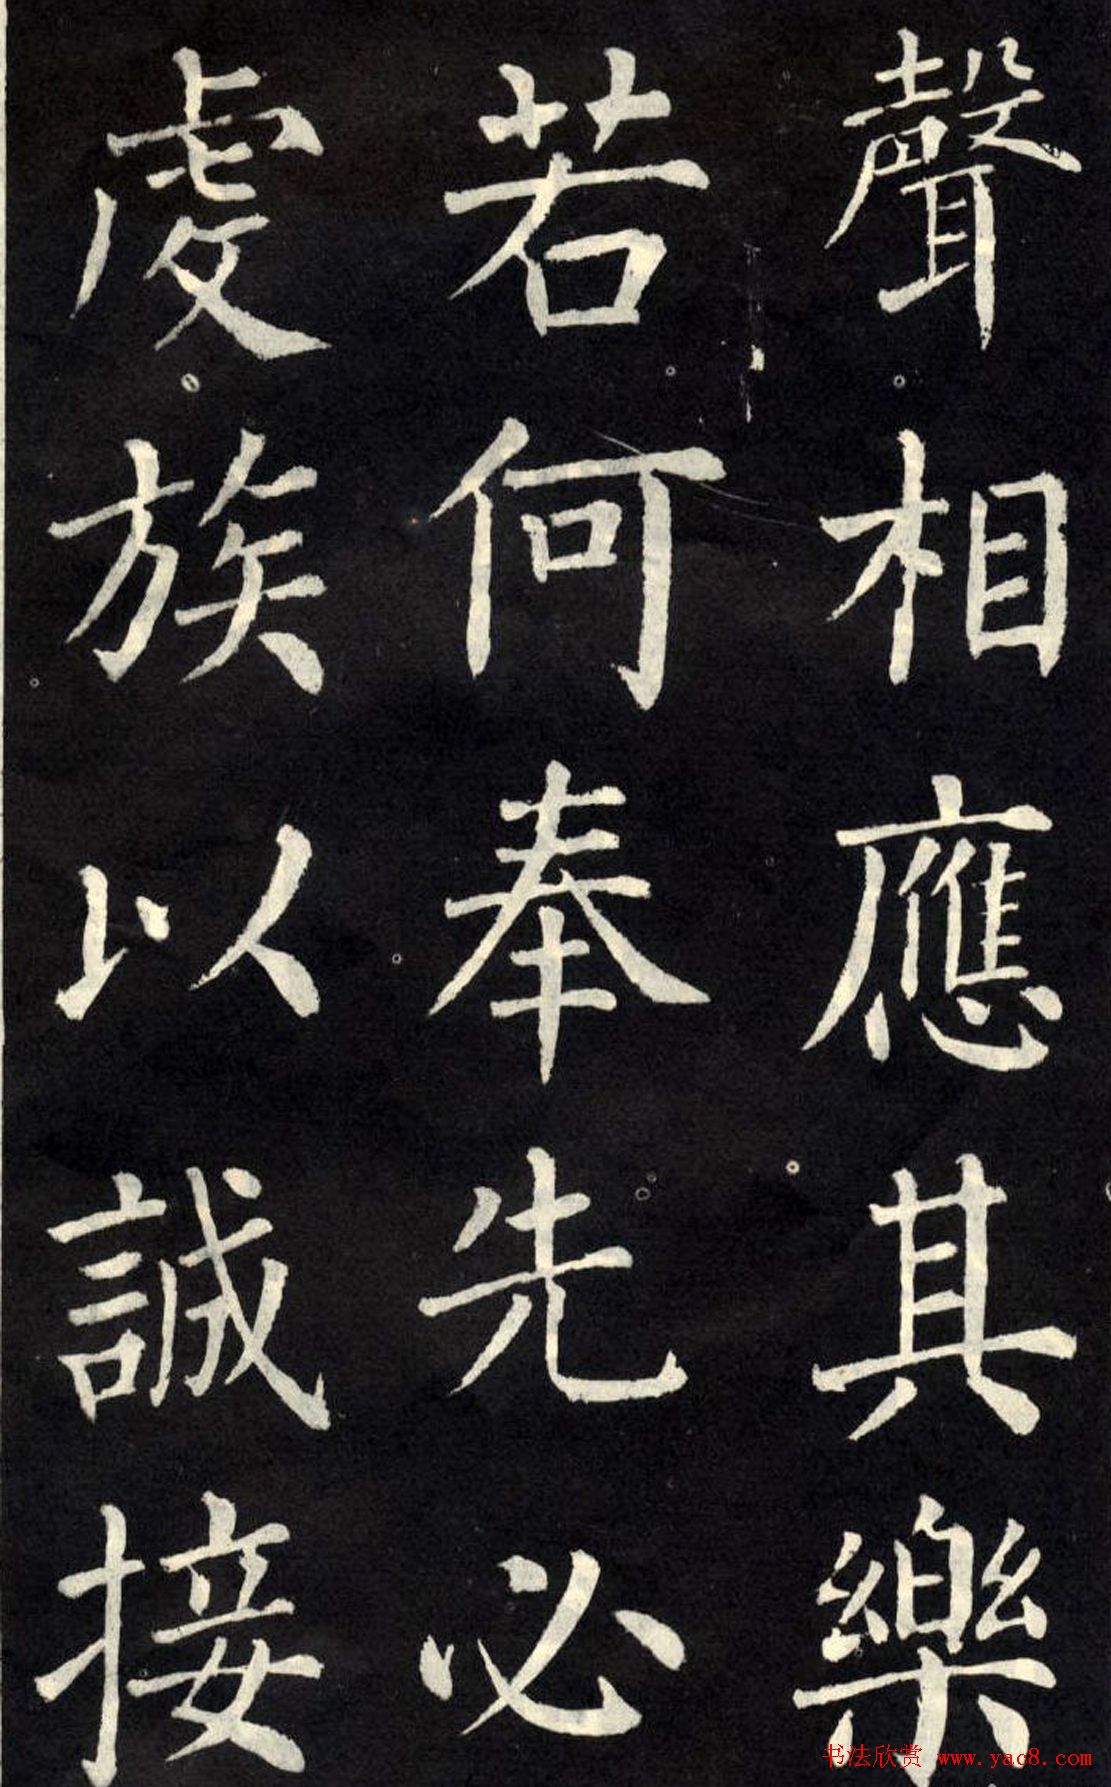 聲相應其樂
若何奉先必
虔族以誠接
书法欣赏 www.yac8.com